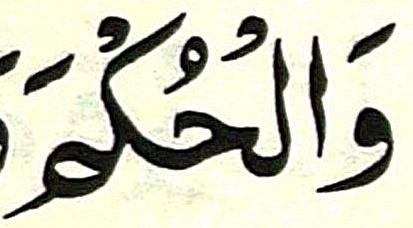 وَالْحُكْمَ